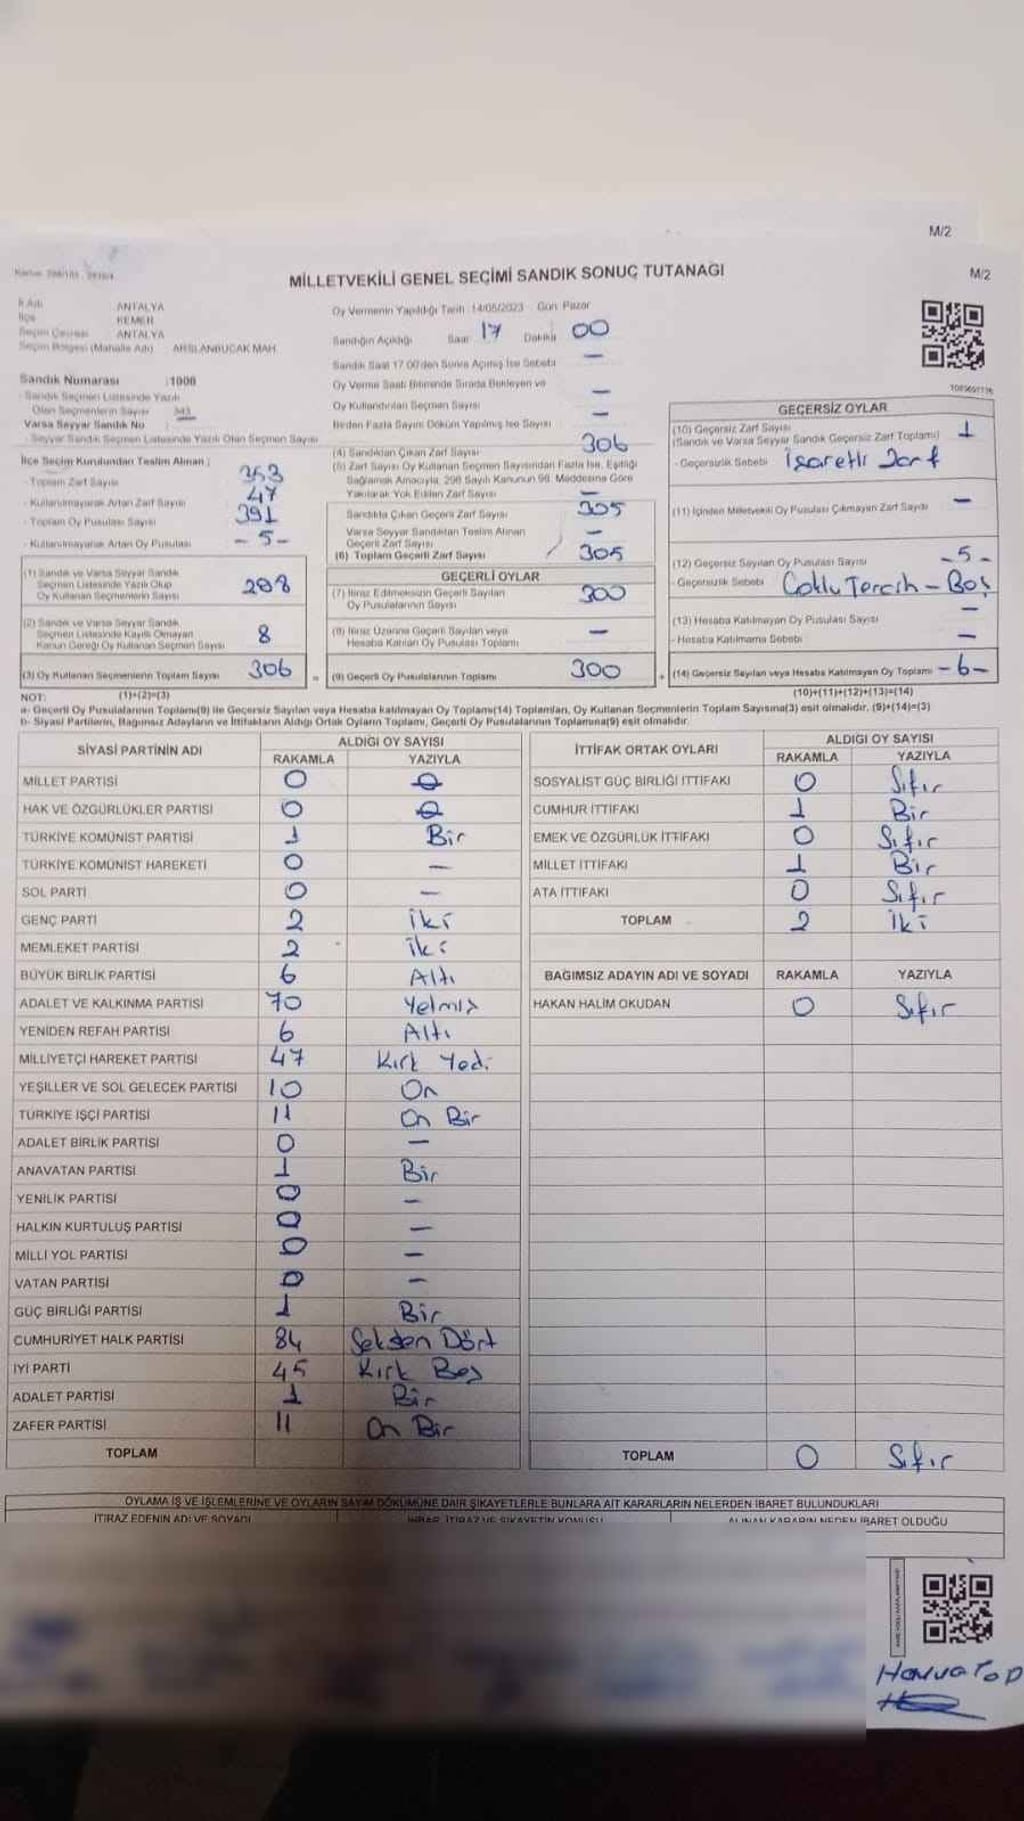 M/2
MİLLETVEKİLİ GENEL SEÇİMİ SANDIK SONUÇ TUTANAĞI
M/2
İl Adı ANTALYA
İlçe KEMER
Seçim Çevresi ANTALYA
Seçim Bölgesi (Mahalle Adı) ARSLANBUCAK MAH.
Sandık Numarası :1006
Sandık Seçmen Listesinde Yazılı
Olan Seçmenlerin Sayısı 343
Varsa Seyyar Sandık No
Seyyar Sandık Seçmen Listesinde Yazılı Olan Seçmen Sayısı
İlçe Seçim Kurulundan Teslim Alınan ;
- Toplam Zarf Sayısı 353
- Kullanılmayarak Artan Zarf Sayısı 47
- Toplam Oy Pusulası Sayısı 391
- Kullanılmayarak Artan Oy Pusulası - 5 -
(1) Sandık ve Varsa Seyyar Sandık
Seçmen Listesinde Yazılı Olup
Oy Kullanan Seçmenlerin Sayısı 298
(2) Sandık ve Varsa Seyyar Sandık
Seçmen Listesinde Kayıtlı Olmayan
Kanun Gereği Oy Kullanan Seçmen Sayısı 8
(3) Oy Kullanan Seçmenlerin Toplam Sayısı 306
(1)+(2)=(3)
Oy Vermenin Yapıldığı Tarih :14/05/2023 Gün: Pazar
Sandığın Açıldığı Saat 17 Dakika 00
Sandık Saat 17:00'den Sonra Açılmış İse Sebebi —
Oy Verme Saati Bitiminde Sırada Bekleyen ve
Oy Kullandırılan Seçmen Sayısı —
Birden Fazla Sayım Döküm Yapılmış İse Sayısı —
(4) Sandıktan Çıkan Zarf Sayısı 306
(5) Zarf Sayısı Oy Kullanan Seçmen Sayısından Fazla İse, Eşitliği
Sağlamak Amacıyla, 298 Sayılı Kanunun 98. Maddesine Göre
Yakılarak Yok Edilen Zarf Sayısı —
Sandıkta Çıkan Geçerli Zarf Sayısı 305
Varsa Seyyar Sandıktan Teslim Alınan
Geçerli Zarf Sayısı —
(6) Toplam Geçerli Zarf Sayısı 305
GEÇERLİ OYLAR
(7) İtiraz Edilmeksizin Geçerli Sayılan
Oy Pusulalarının Sayısı 300
(8) İtiraz Üzerine Geçerli Sayılan veya
Hesaba Katılan Oy Pusulası Toplamı —
= (9) Geçerli Oy Pusulalarının Toplamı 300
GEÇERSİZ OYLAR
(10) Geçersiz Zarf Sayısı
(Sandık ve Varsa Seyyar Sandık Geçersiz Zarf Toplamı) 1
- Geçersizlik Sebebi İşaretli Zarf
(11) İçinden Milletvekili Oy Pusulası Çıkmayan Zarf Sayısı —
(12) Geçersiz Sayılan Oy Pusulası Sayısı - 5 -
- Geçersizlik Sebebi Çoklu Tercih - Boş
(13) Hesaba Katılmayan Oy Pusulası Sayısı —
- Hesaba Katılmama Sebebi —
+ (14) Geçersiz Sayılan veya Hesaba Katılmayan Oy Toplamı - 6 -
(10)+(11)+(12)+(13)=(14)
NOT:
a- Geçerli Oy Pusulalarının Toplamı(9) ile Geçersiz Sayılan veya Hesaba katılmayan Oy Toplamı(14) Toplamları, Oy Kullanan Seçmenlerin Toplam Sayısına(3) eşit olmalıdır. (9)+(14)=(3)
b- Siyasi Partilerin, Bağımsız Adayların ve İttifakların Aldığı Ortak Oyların Toplamı, Geçerli Oy Pusulalarının Toplamına(9) eşit olmalıdır.
SİYASİ PARTİNİN ADI ALDIĞI OY SAYISI
RAKAMLA YAZIYLA
MİLLET PARTİSİ 0 0
HAK VE ÖZGÜRLÜKLER PARTİSİ 0 0
TÜRKİYE KOMÜNİST PARTİSİ 1 Bir
TÜRKİYE KOMÜNİST HAREKETİ 0 —
SOL PARTİ 0 —
GENÇ PARTİ 2 İki
MEMLEKET PARTİSİ 2 İki
BÜYÜK BİRLİK PARTİSİ 6 Altı
ADALET VE KALKINMA PARTİSİ 70 Yetmiş
YENİDEN REFAH PARTİSİ 6 Altı
MİLLİYETÇİ HAREKET PARTİSİ 47 Kırk Yedi
YEŞİLLER VE SOL GELECEK PARTİSİ 10 On
TÜRKİYE İŞÇİ PARTİSİ 11 On Bir
ADALET BİRLİK PARTİSİ 0 —
ANAVATAN PARTİSİ 1 Bir
YENİLİK PARTİSİ 0 —
HALKIN KURTULUŞ PARTİSİ 0 —
MİLLİ YOL PARTİSİ 0 —
VATAN PARTİSİ 0 —
GÜÇ BİRLİĞİ PARTİSİ 1 Bir
CUMHURİYET HALK PARTİSİ 84 Seksen Dört
İYİ PARTİ 45 Kırk Beş
ADALET PARTİSİ 1 Bir
ZAFER PARTİSİ 11 On Bir
TOPLAM
İTTİFAK ORTAK OYLARI ALDIĞI OY SAYISI
RAKAMLA YAZIYLA
SOSYALİST GÜÇ BİRLİĞİ İTTİFAKI 0 Sıfır
CUMHUR İTTİFAKI 1 Bir
EMEK VE ÖZGÜRLÜK İTTİFAKI 0 Sıfır
MİLLET İTTİFAKI 1 Bir
ATA İTTİFAKI 0 Sıfır
TOPLAM 2 İki
BAĞIMSIZ ADAYIN ADI VE SOYADI RAKAMLA YAZIYLA
HAKAN HALİM OKUDAN 0 Sıfır
TOPLAM 0 Sıfır
OYLAMA İŞ VE İŞLEMLERİNE VE OYLARIN SAYIM DÖKÜMÜNE DAİR ŞİKAYETLERLE BUNLARA AİT KARARLARIN NELERDEN İBARET BULUNDUKLARI
İTİRAZ EDENİN ADI VE SOYADI İHBAR, İTİRAZ VE ŞİKAYETİN KONUSU ALINAN KARARIN NEDEN İBARET OLDUĞU
Havva Top